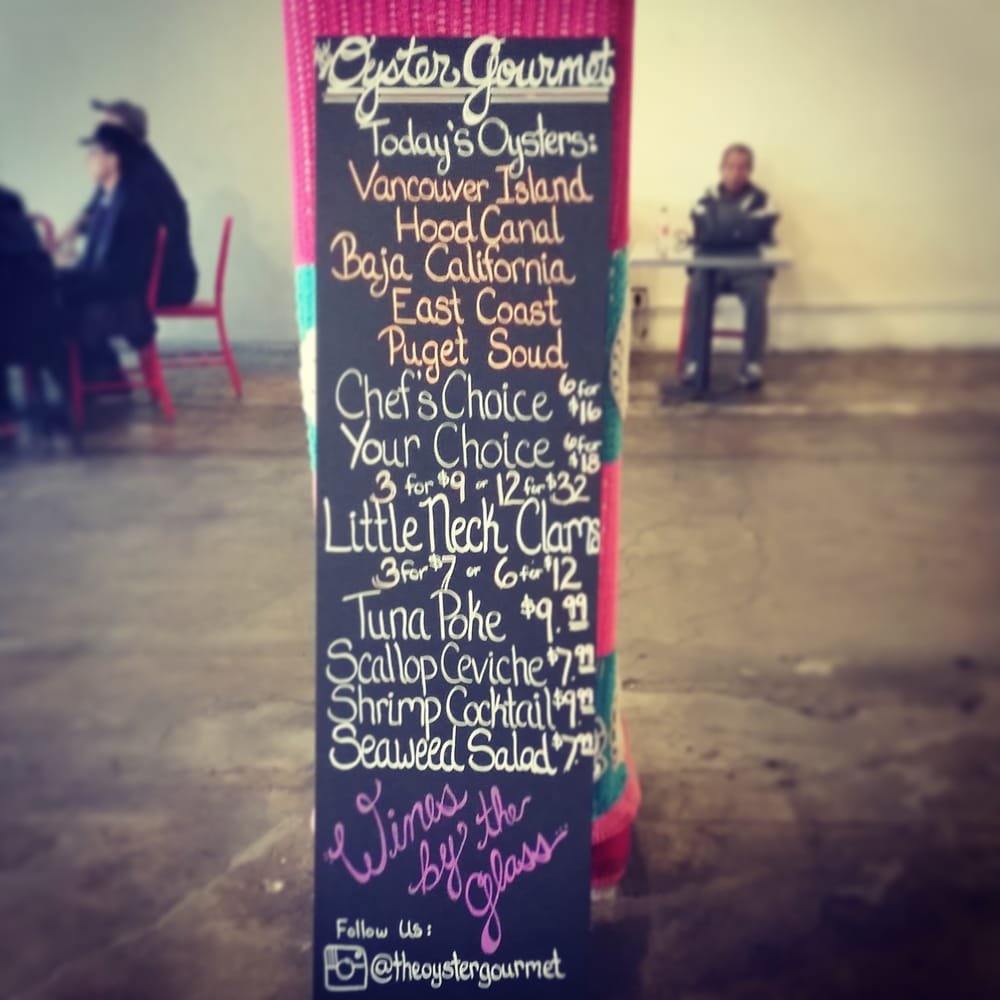 Oyster Gourmet
Today's Oysters:
Vancouver Island
Hood Canal
Baja California
East Coast
Puget Soud
Chef's Choice 6 for $16
Your Choice 6 for $18
3 for $9 or 12 for $32
Little Neck Clams
3 for $7 or 6 for $12
Tuna Poke $9.99
Scallop Ceviche $7.99
Shrimp Cocktail $9.99
Seaweed Salad $7.99
Wines
by the
Glass...
Follow Us:
@theoystergourmet